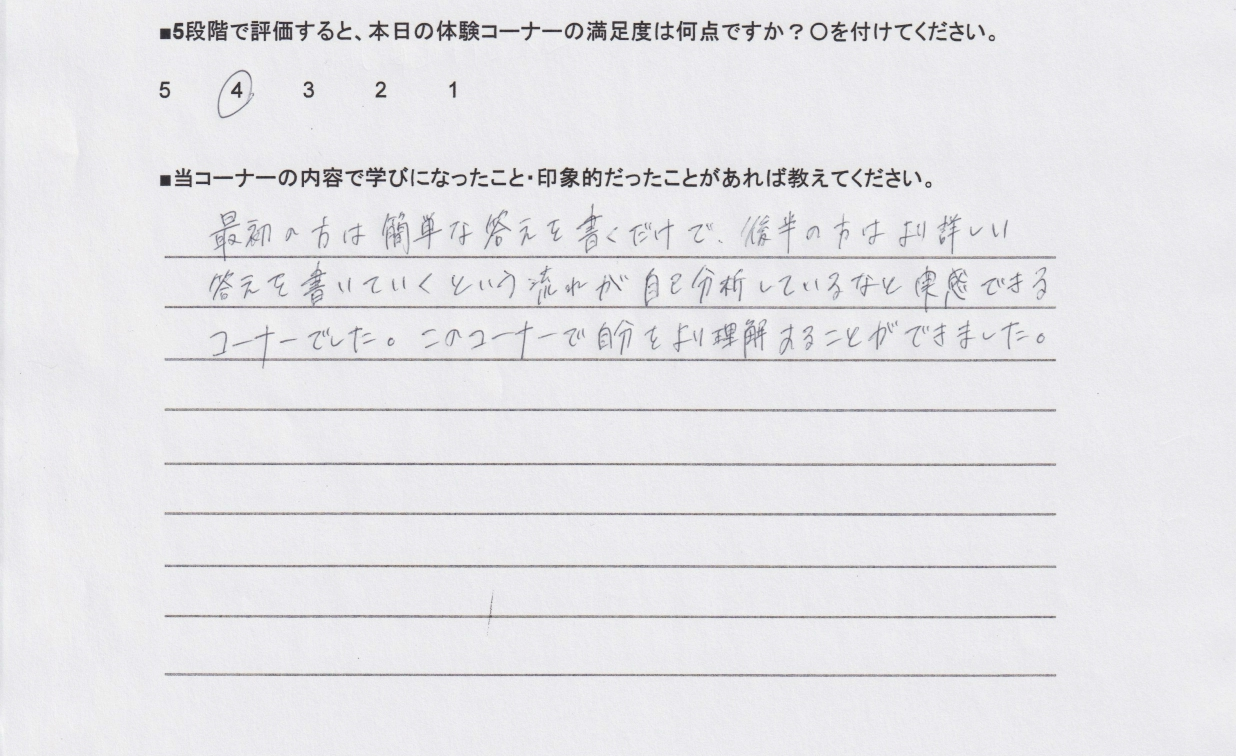 ■5段階で評価すると、本日の体験コーナーの満足度は何点ですか？〇を付けてください。
5 4 3 2 1
■当コーナーの内容で学びになったこと・印象的だったことがあれば教えてください。
最初の方は簡単な答えを書くだけで、後半の方はより詳しい
答えを書いていくという流れが自己分析しているなと実感できる
コーナーでした。このコーナーで自分をより理解することができました。